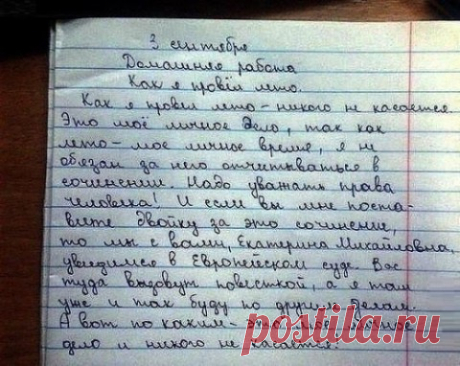 3 сентября
Домашняя работа
Как я провёл лето.
Как я провёл лето - никого не касается.
Это моё личное дело, так как
лето - мое личное время, я не
обязан за него отчитываться в
сочинении. Надо уважать права
человека! И если вы мне поста-
вите двойку за это сочинение,
то мы с вами, Екатерина Михайловна,
увидимся в Европейском суде. Вас
туда вызовут повесткой, а я там
уже и так буду по другим делам.
А вот по каким - это мое личное
дело и никого не касается.
postila.ru